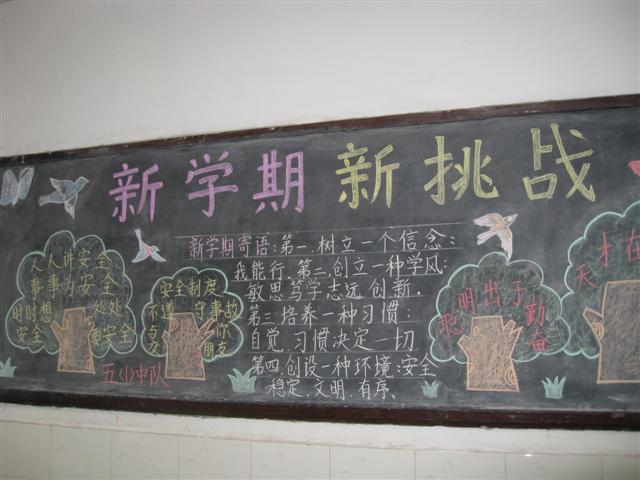 新学期 新挑战
新学期寄语:第一.树立一个信念:
我能行.第二.创立一种学风:
敏思笃学志远.创新.
第三.培养一种习惯:
自觉.习惯决定一切
第四.创设一种环境:安全
稳定.文明.有序.
人人讲安全
事事为安全
时时想安全
处处要安全
安全制度
不遵守
事故
与你
交朋友
五(1)中队
聪明出于勤奋
天才在